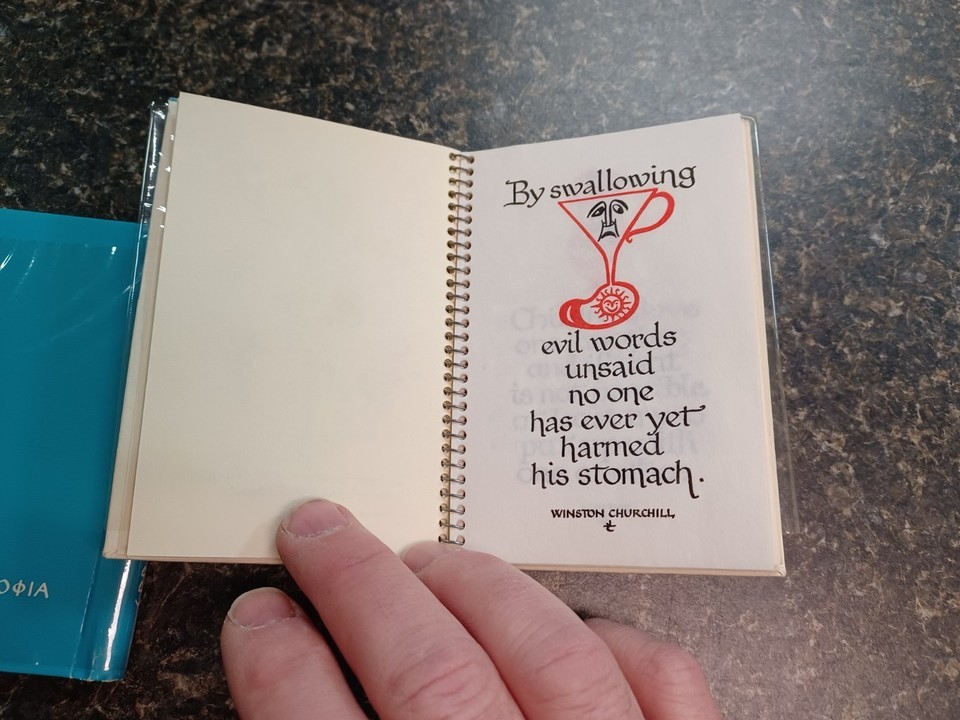 ΟΦΙΑ
By swallowing
evil words
unsaid
no one
has ever yet
harmed
his stomach.
WINSTON CHURCHILL